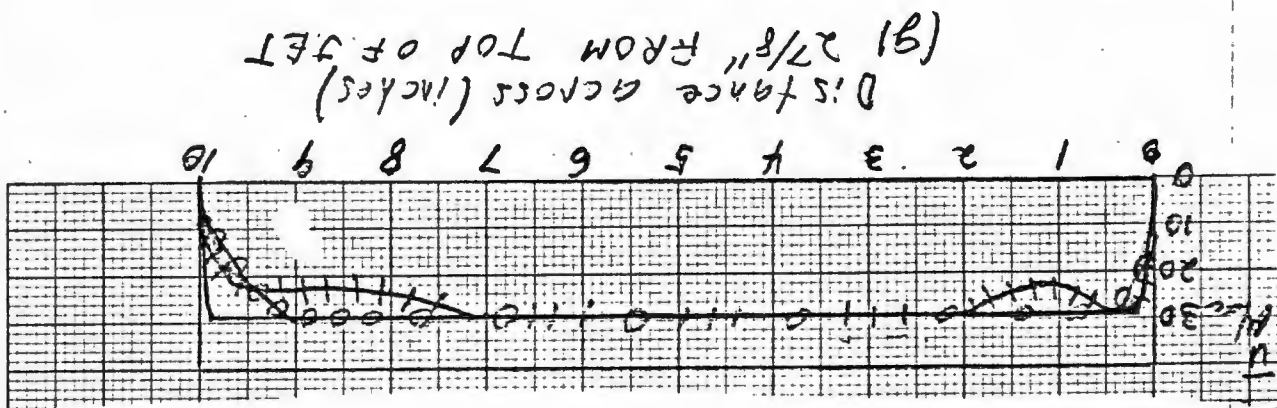 U
30
20
10
0
0 1 2 3 4 5 6 7 8 9 10
Distance across (inches)
(g) 2 7/8" FROM TOP OF JET